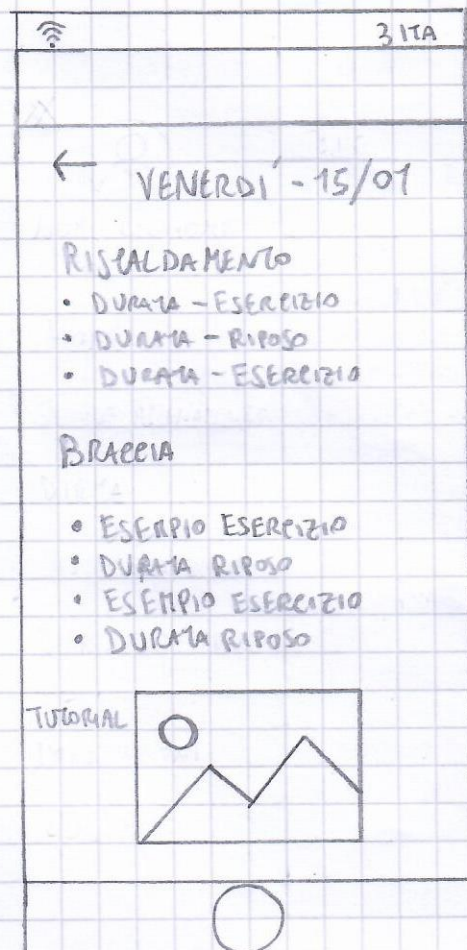 3 ITA
← VENERDI' - 15/01
RISCALDAMENTO
• DURATA - ESERCIZIO
• DURATA - RIPOSO
• DURATA - ESERCIZIO
BRACCIA
• ESEMPIO ESERCIZIO
• DURATA RIPOSO
• ESEMPIO ESERCIZIO
• DURATA RIPOSO
TUTORIAL